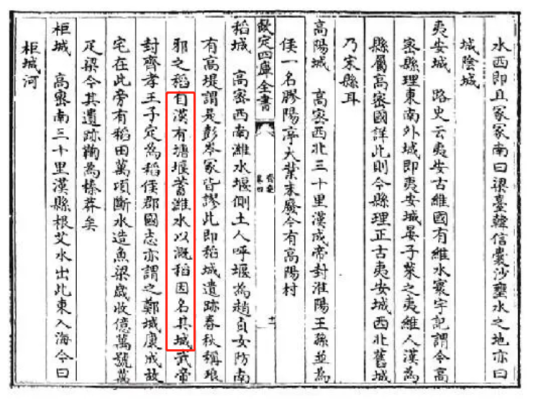 水西即且冢冢南曰梁臺韓信囊沙壅水之地亦曰
城陰城
夷安城　路史云夷安古維國有維水寰宇記謂今高
密縣理東南外城即夷安城晏子萊之夷維人漢為
縣屬高密國詳此則今縣理正古夷安城西北舊城
乃宋縣耳
高陽城　高密西北三十里漢成帝封淮陽王孫並為
侯一名膠陽亭大業末廢今有高陽村
欽定四庫全書
稻城　高密西南濰水堰側土人呼堰為趙貞女防南
有高堤謂是彭岑冢皆謬此即稻城遺跡春秋稱琅
邪之稻自漢有塘堰蓄濰水以溉稻因名其城武帝
封齊孝王子定為稻侯郡國志亦謂之鄭城康成故
宅在此旁有稻田萬頃斷水造魚梁歲收億萬號萬
疋梁今其遺跡鞠為榛莽矣
柜城　高密南三十里漢縣根艾水出此東入海今曰
柜城河